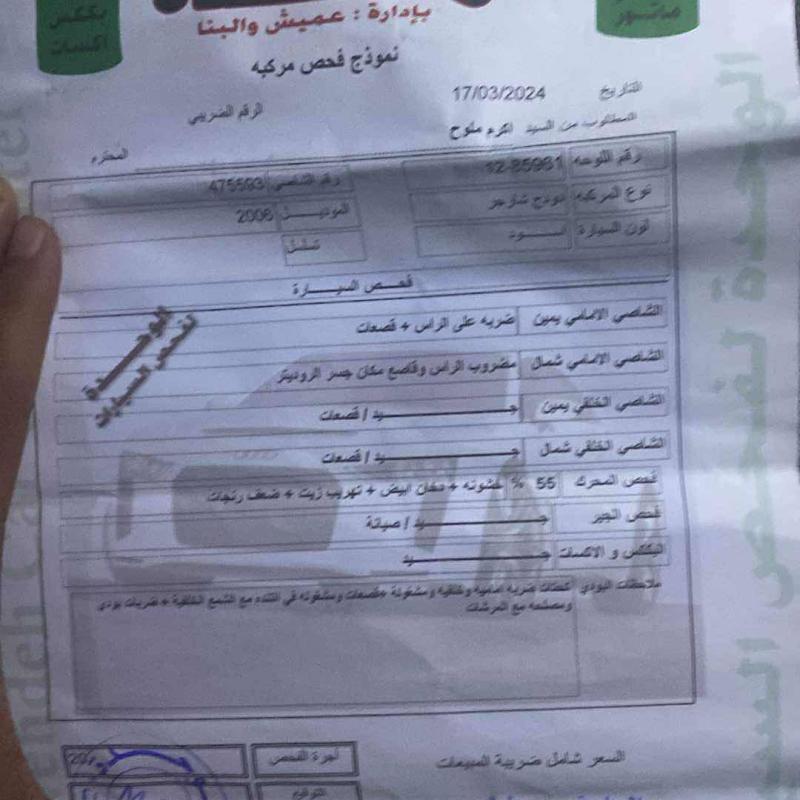 بككس
اكسات
ماتور
بإدارة : عميش والبنا
نموذج فحص مركبه
التاريخ 17/03/2024
الرقم الضريبي
المطلوب من السيد اكرم ملوح المحترم
رقم اللوحه 12-85981 رقم الشاصي 475593
نوع المركبه دودج شارجر الموديـــــل 2006
لون السيارة اســـــود تسلسل
فحص السيـــــارة
الشاصي الامامي يمين ضربه على الراس + قصعات
الشاصي الامامي شمال مضروب الراس وقاصع مكان جسر الروديتر
الشاصي الخلفي يمين جــــــــــيد / قصعات
الشاصي الخلفي شمال جــــــــــيد / قصعات
فحص المحرك 55 % خشونه + دخان ابيض + تهريب زيت + ضعف رنجات
فحص الجير جــــــــــيد / صيانة
البككس و الاكسات جــــــــــيد
الوحـــدة
لفحص السيارات
ملاحظات البودي كشتات ضربه اماميه وخلفيه ومشغولة +قصعات ومشغوله في التنده مع الشمع الخلفية + ضربات بودي
ومصلحه مع المرشات
السعر شامل ضريبة المبيعات
أجرة الفحص
التوقيع
الوحدة لفحص